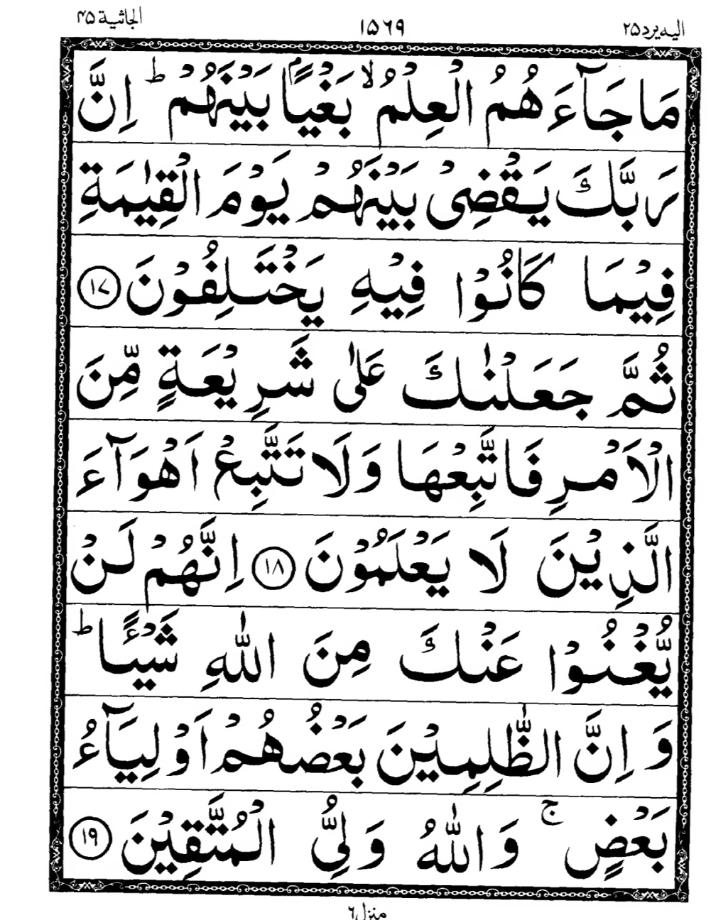 الیه یرد ۲۵ ۱۵۶۹ الجاثیة ۴۵
مَا جَآءَهُمُ الْعِلْمُ ۙ بَغْیًۢا بَیْنَهُمْ ؕ اِنَّ
رَبَّكَ یَقْضِیْ بَیْنَهُمْ یَوْمَ الْقِیٰمَةِ
فِیْمَا كَانُوْا فِیْهِ یَخْتَلِفُوْنَ ﴿۱۷﴾
ثُمَّ جَعَلْنٰكَ عَلٰی شَرِیْعَةٍ مِّنَ
الْاَمْرِ فَاتَّبِعْهَا وَلَا تَتَّبِعْ اَهْوَآءَ
الَّذِیْنَ لَا یَعْلَمُوْنَ ﴿۱۸﴾ اِنَّهُمْ لَنْ
یُّغْنُوْا عَنْكَ مِنَ اللّٰهِ شَیْـًٔا ؕ
وَ اِنَّ الظّٰلِمِیْنَ بَعْضُهُمْ اَوْلِیَآءُ
بَعْضٍ ۚ وَاللّٰهُ وَلِیُّ الْمُتَّقِیْنَ ﴿۱۹﴾
منزل ۶